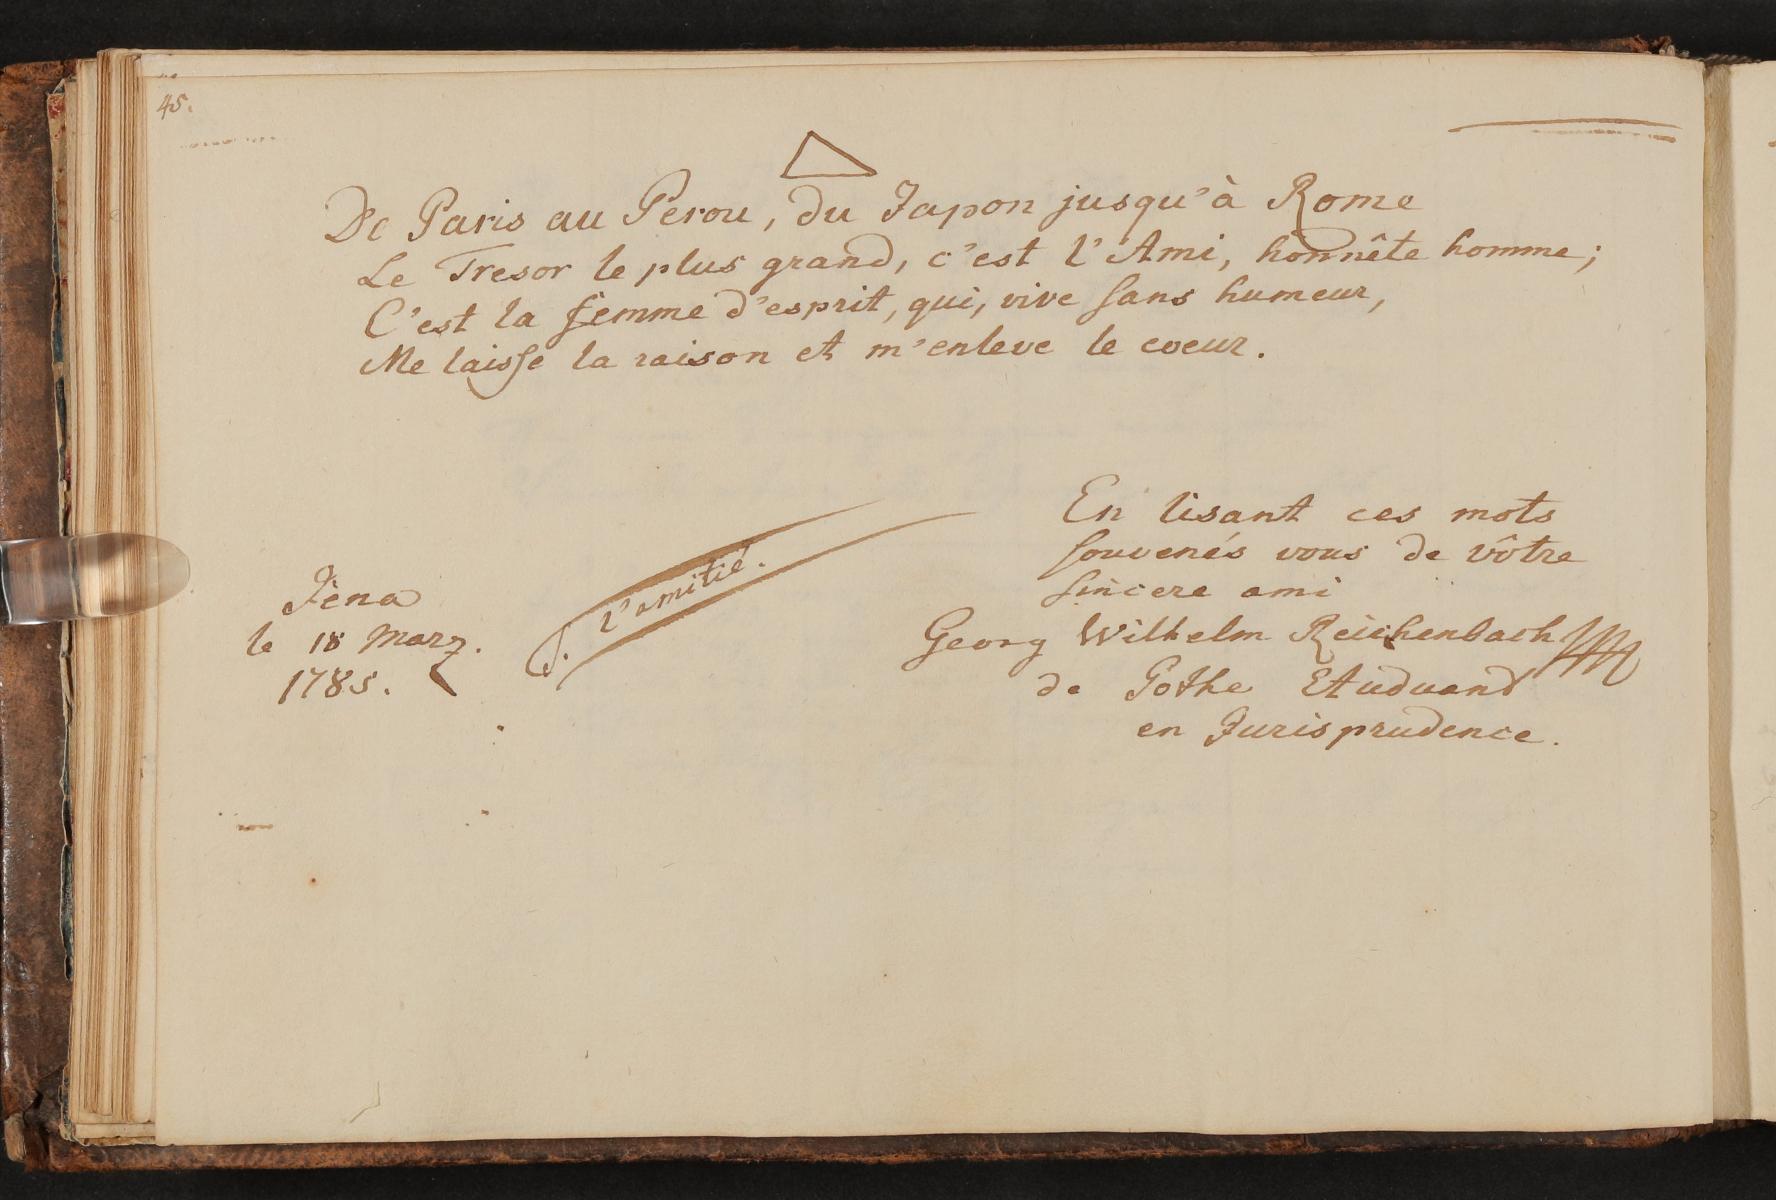 45.
De Paris au Perou, du Japon jusqu'à Rome
Le Tresor le plus grand, c'est l'Ami, honnête homme;
C'est la femme d'esprit, qui, vive sans humeur,
Me laisse la raison et m'enleve le coeur.
En lisant ces mots
souvenés vous de vôtre
sincere ami
Georg Wilhelm Reichenbach
de Gothe Etuduand
en Jurisprudence.
Jéna
le 18 Marz.
1785.
S. l'amitié.